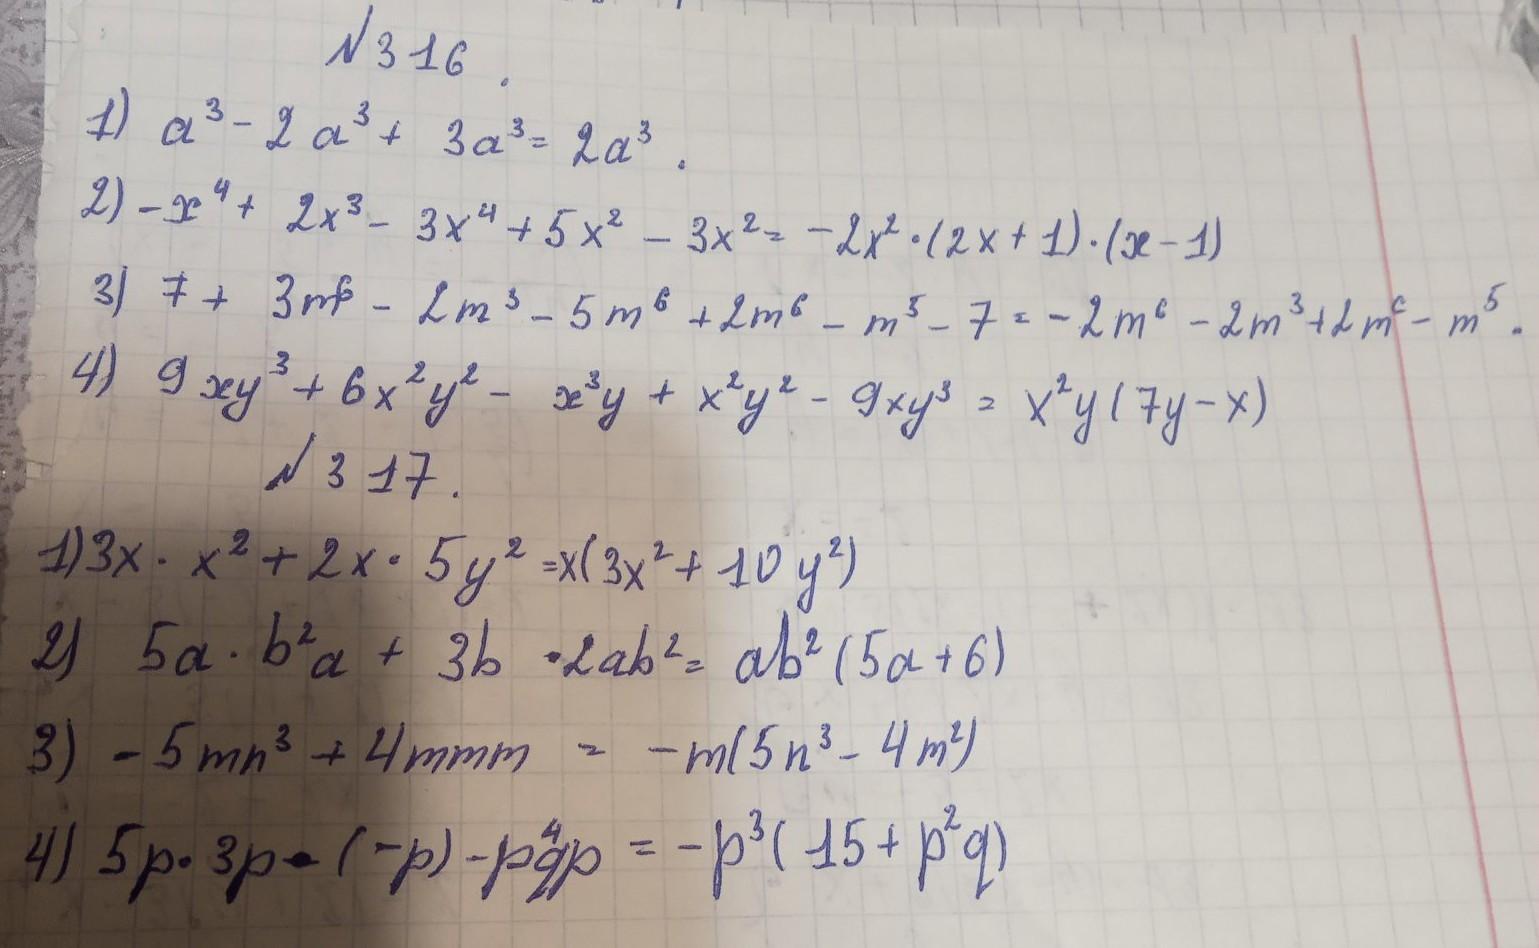 №316.
1) a³ - 2a³ + 3a³ = 2a³.
2) -x⁴ + 2x³ - 3x⁴ + 5x² - 3x² = -2x²·(2x+1)·(x-1)
3) 7 + 3m⁶ - 2m³ - 5m⁶ + 2m⁶ - m⁵ - 7 = -2m⁶ - 2m³ + 2m⁶ - m⁵.
4) 9xy³ + 6x²y² - x³y + x²y² - 9xy³ = x²y(7y-x)
№317.
1) 3x·x² + 2x·5y² = x(3x² + 10y²)
2) 5a·b²a + 3b·2ab² = ab²(5a+6)
3) -5mn³ + 4mmm = -m(5n³ - 4m²)
4) 5p·3p·(-p) - p⁴qp = -p³(15 + p²q)